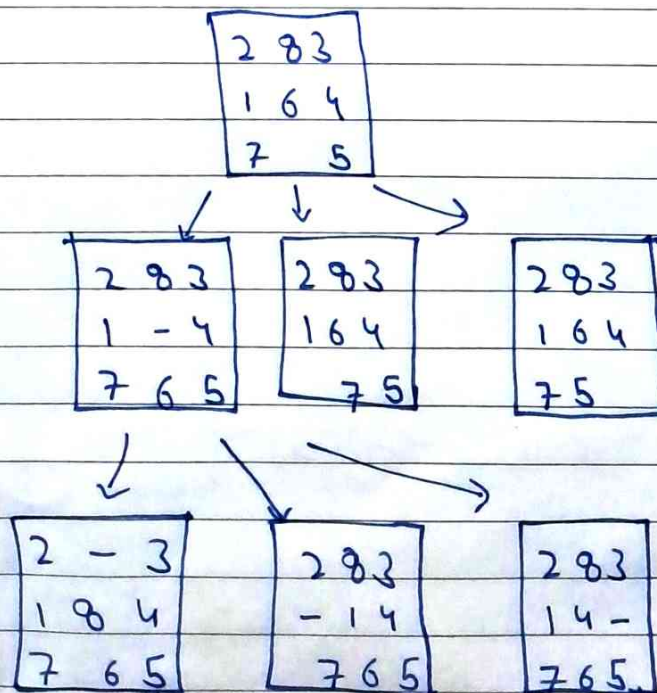 2 8 3
1 6 4
7 5
2 8 3
1 - 4
7 6 5
2 8 3
1 6 4
7 5
2 8 3
1 6 4
7 5
2 - 3
1 8 4
7 6 5
2 8 3
- 1 4
7 6 5
2 8 3
1 4 -
7 6 5